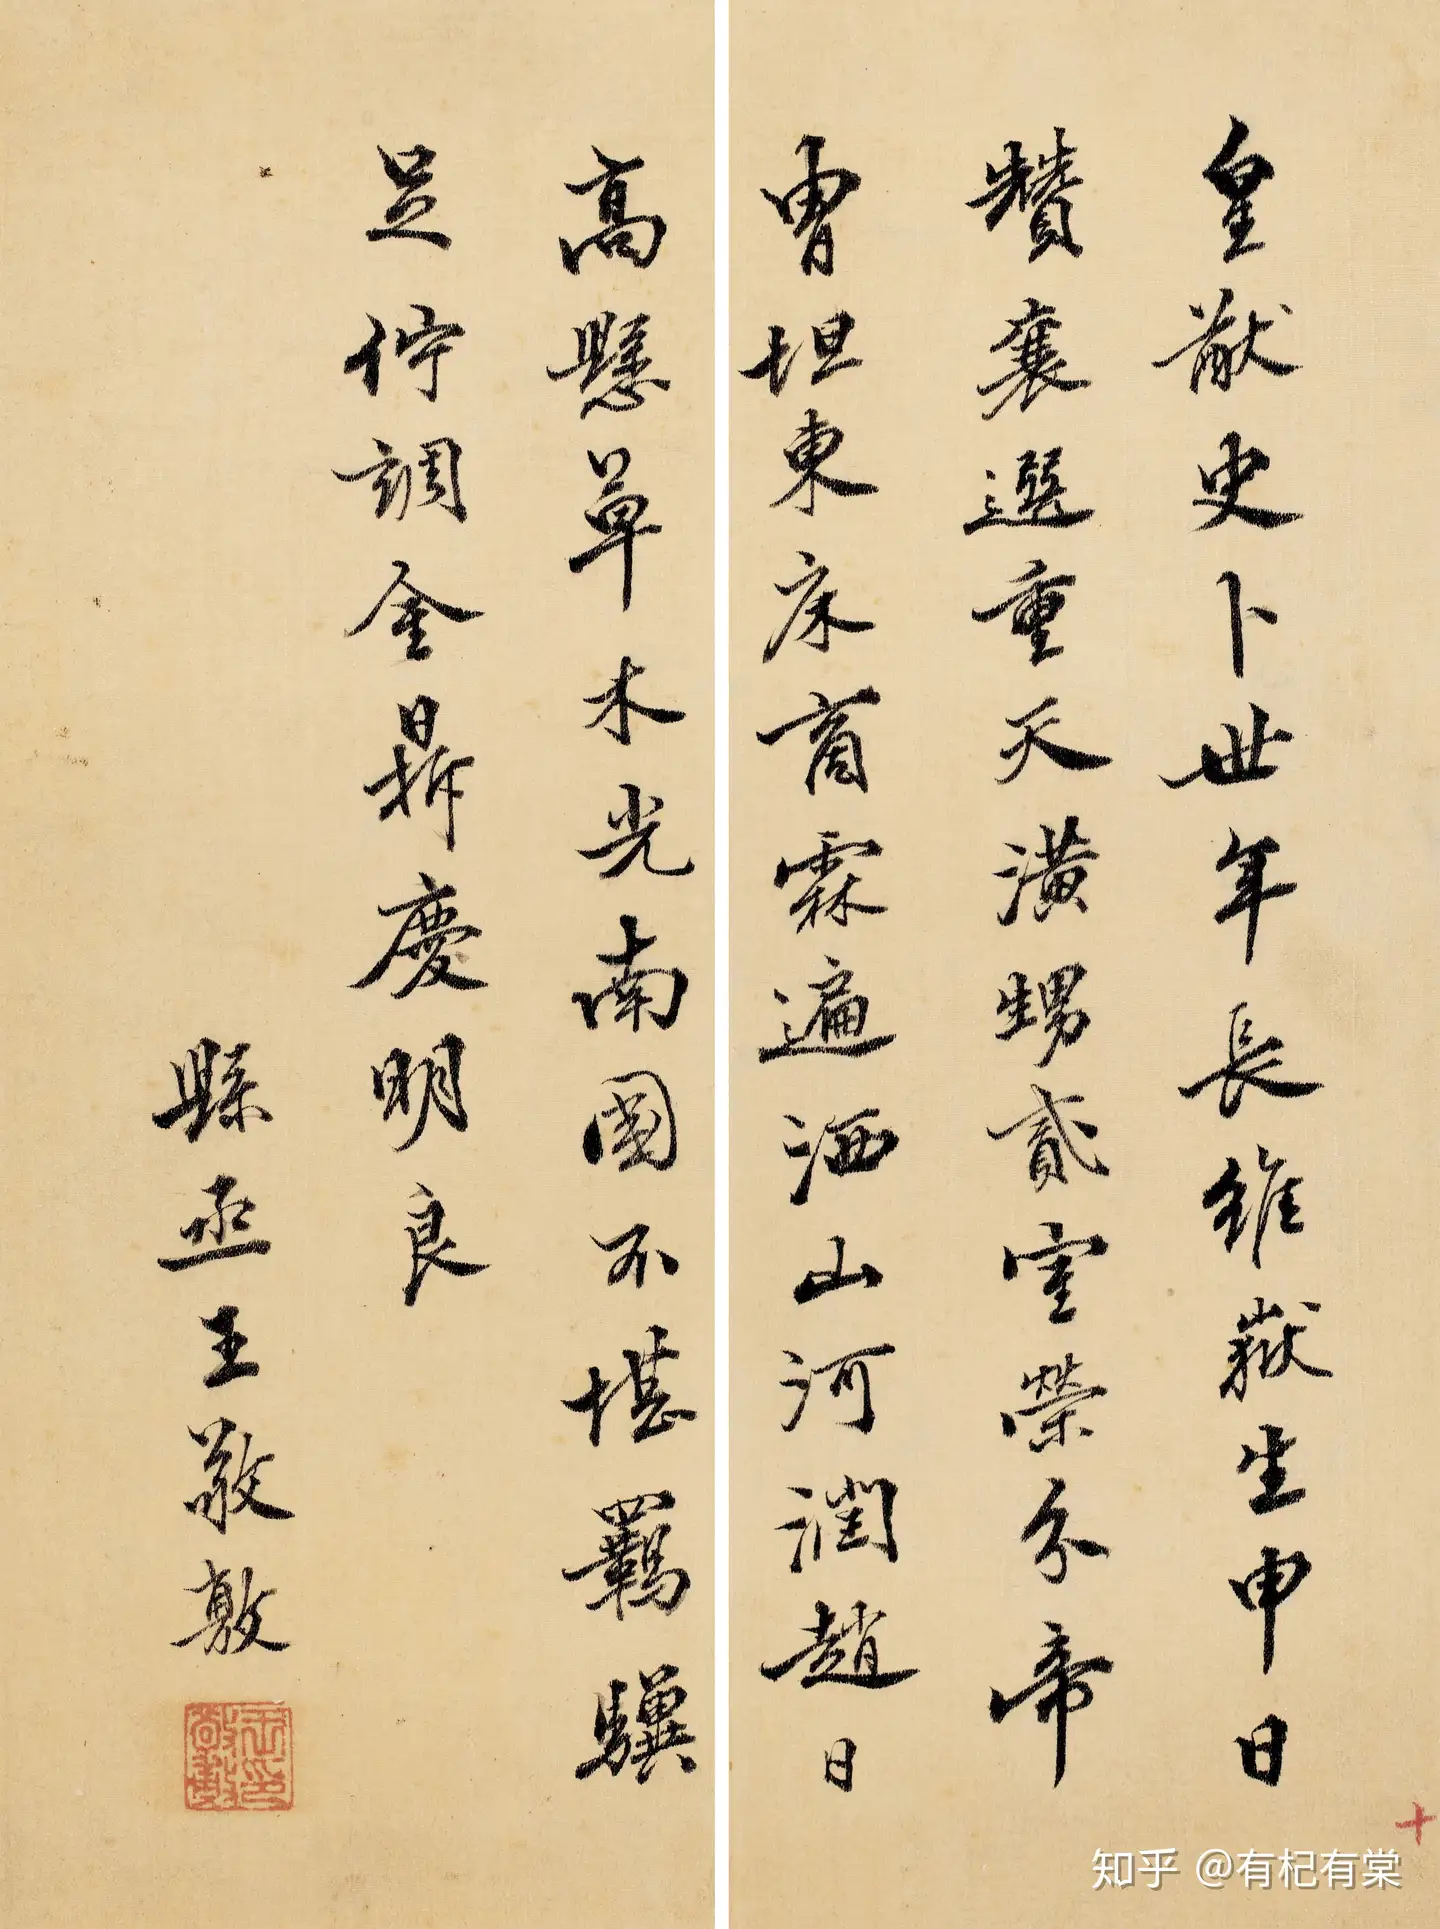 皇猷史卜世年長維嶽生申日
贊襄選重天潢甥貳室榮分帝
胄坦東床商霖遍洒山河潤趙日
高懸草木光南國不堪羈驥
足佇調金鼎慶明良
縣丞王敬敷
十
知乎 @有杞有棠